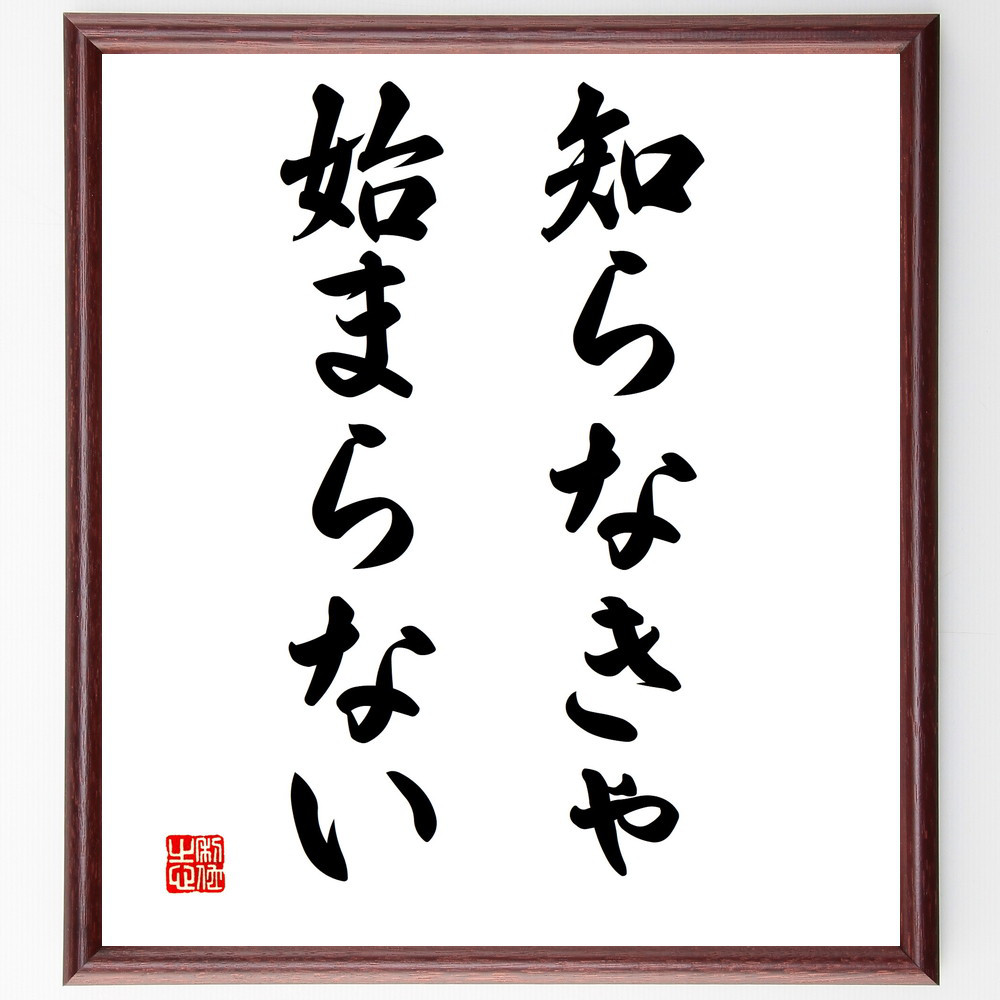 知らなきゃ
始まらない